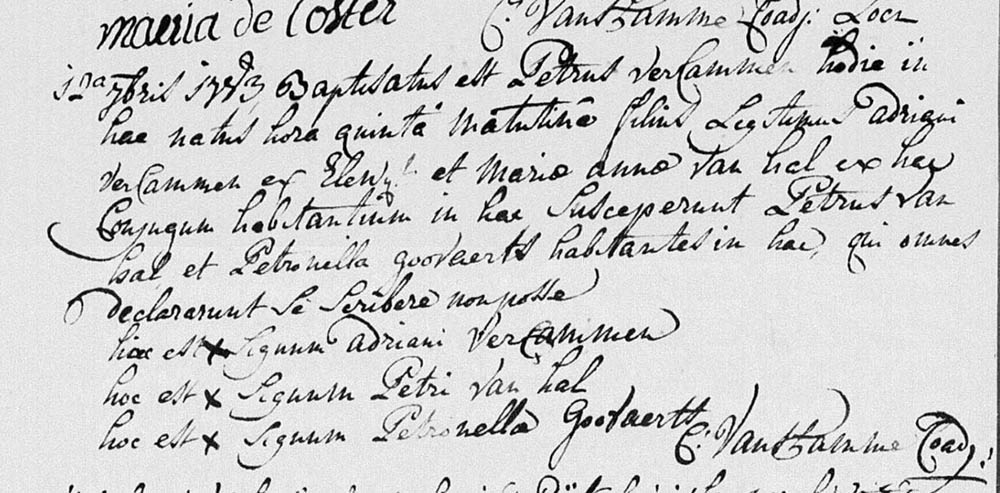 maria de Coster C: VanHamme Coadj: Loci
1ma 7bris 1783 Baptisatus est Petrus verCammen hodie in
hac natus hora quinta Matutina filius Legitimus Adriani
verCammen ex Elewyt et Mariæ annæ van hal ex hac
Conjugum habitantium in hac Susceperunt Petrus van
hal et Petronella gooVaerts habitantes in hac, qui omnes
declararunt se Scribere non posse
hoc est x Signum adriani verCammen
hoc est x Signum Petri van hal
hoc est x Signum Petronella GooVaerts
C: VanHamme Coadj: